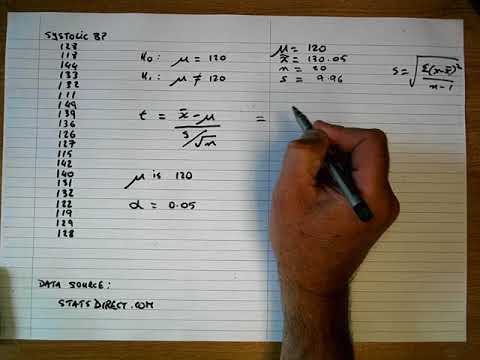 SYSTOLIC BP
128
118
144
133
132
111
149
139
136
126
127
115
142
140
131
132
122
119
129
128
H₀: μ = 120
H₁: μ ≠ 120
t = x̄ - μ / s/√n =
μ is 120
α = 0.05
μ = 120
x̄ = 130.05
n = 20
s = 9.96
s = √Σ(x-x̄)² / n-1
DATA SOURCE:
STATSDIRECT.COM